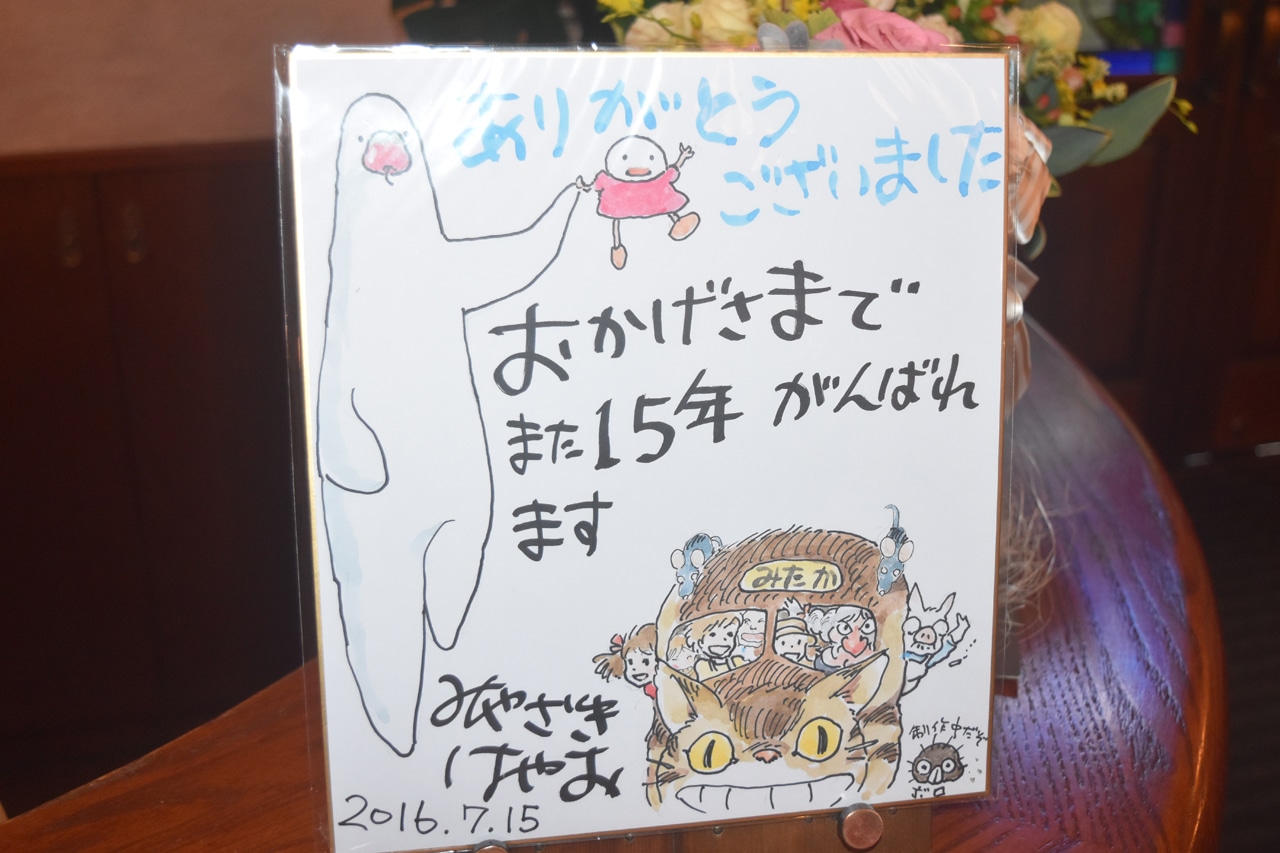 ありがとう
ございました
おかげさまで
また15年 がんばれ
ます
みたか
みやざき
はやお
制作中だぞ
ボロ
2016.7.15